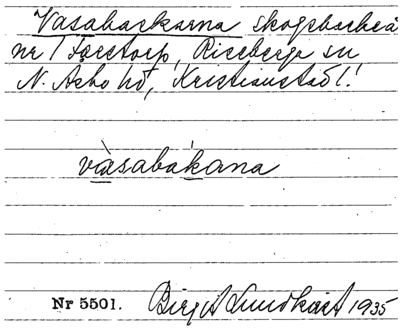 Vasabackarna skogsbacke å
nr 1 Färetorp, Riseberga sn
N. Åsbo hd, Kristianstad l.
vàsabákana
Nr 5501. Birgit Lundkvist 1935